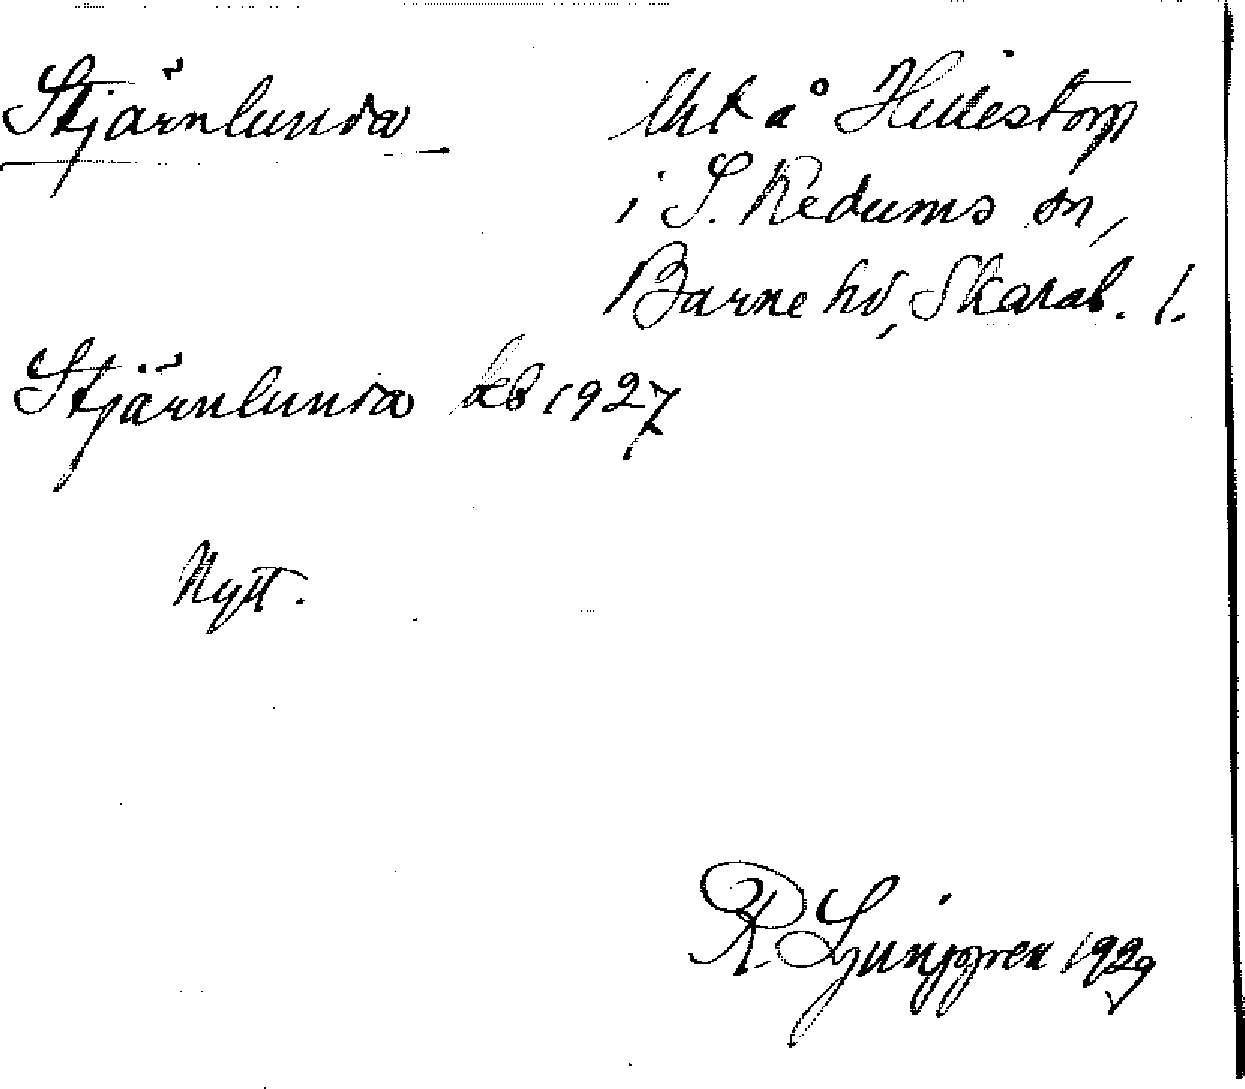 Stjärnlunda
lht å Hillestorp
i S. Kedums sn,
Barne hd, Skarab. l.
Stjärnlunda kb 1927
Nytt.
R. Ljunggren 1929